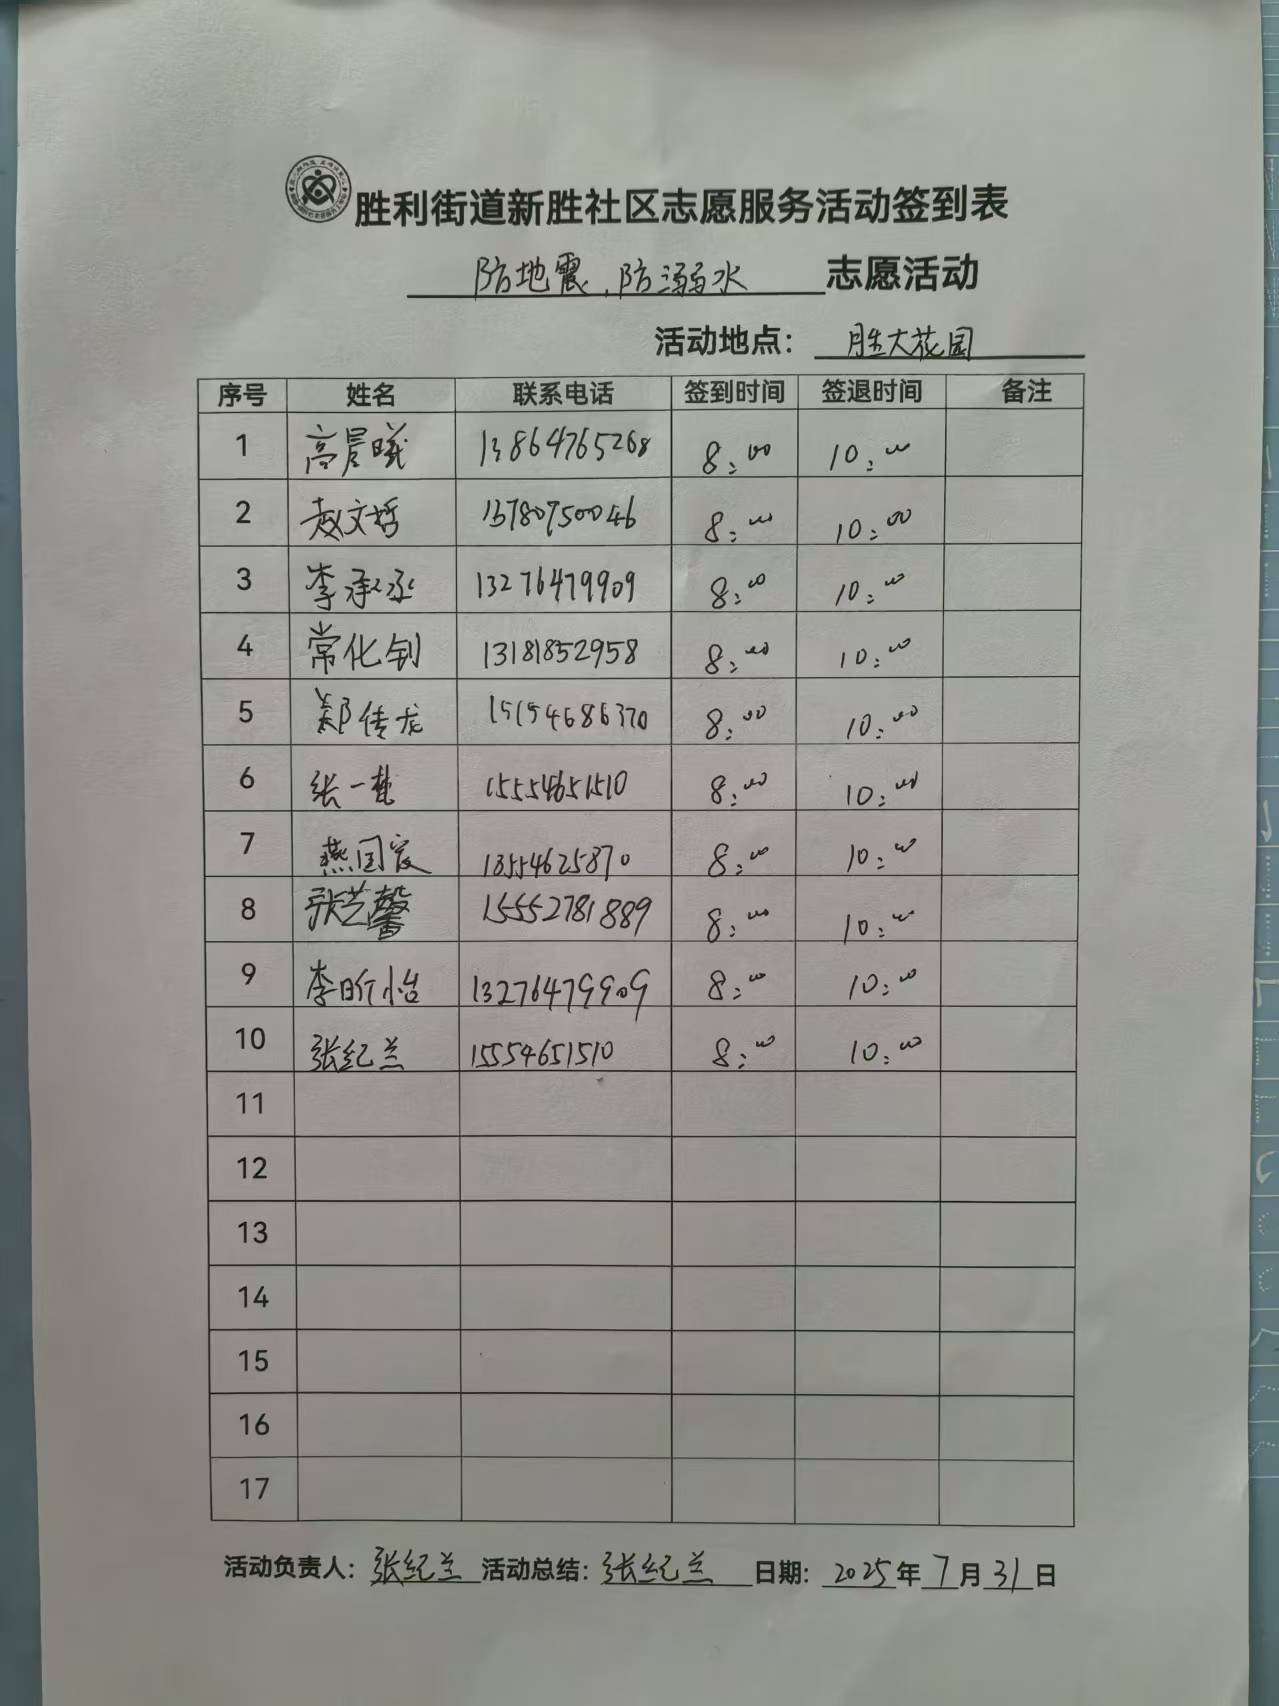 胜利街道新胜社区志愿服务活动签到表
防地震、防溺水 志愿活动
活动地点：胜大花园
序号 姓名 联系电话 签到时间 签退时间 备注
1 高晨曦 13864765268 8:00 10:00
2 赵文哲 13780750046 8:00 10:00
3 李承丞 13276479909 8:00 10:00
4 常化钊 13181852958 8:00 10:00
5 郑传龙 15154686370 8:00 10:00
6 张一梵 15554651510 8:00 10:00
7 燕国宸 13554625870 8:00 10:00
8 张艺馨 15552781889 8:00 10:00
9 李昕怡 13276479909 8:00 10:00
10 张纪兰 15554651510 8:00 10:00
11
12
13
14
15
16
17
活动负责人：张纪兰 活动总结：张纪兰 日期：2025年7月31日